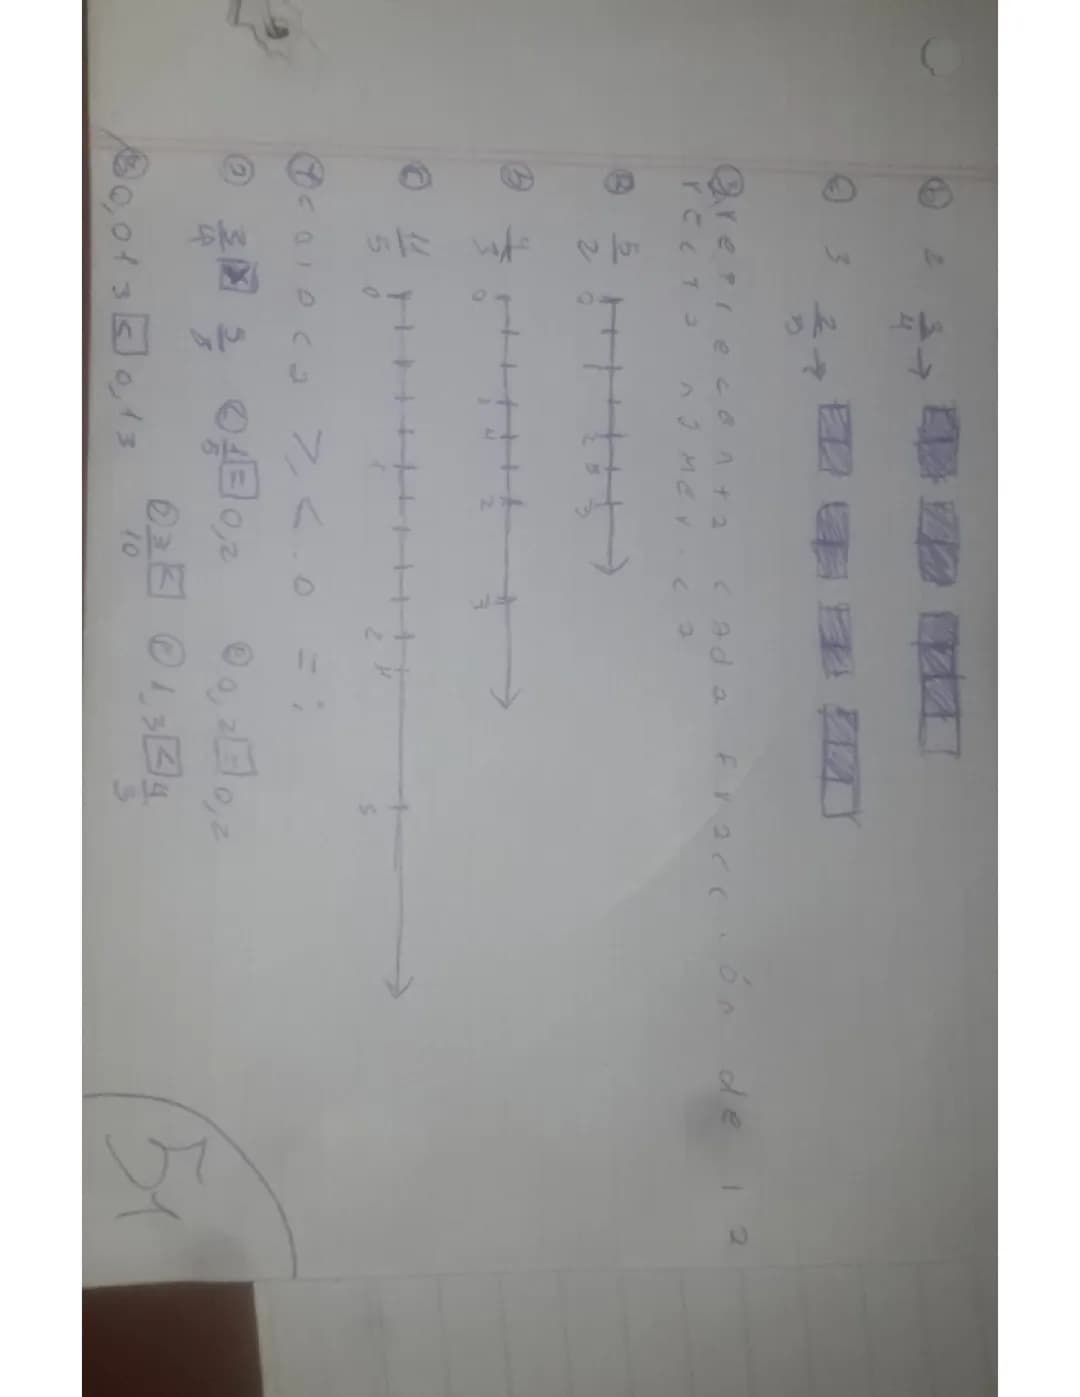 b 2 3/4 →
c 3 2/3 →
3 representa cada fracción de la
recta númerica
a 5/2 0 1 2 5 3
b 4/3 0 1 4 2 3
c 11/5 0 1 2 11 3
4 coloca >, < o =:
a 3/4 3/8 c 1/5 = 0,2 e 0,2 = 0,2
b 0,013 < 0,13 d 3/10 < f 1,3 < 4/3
51